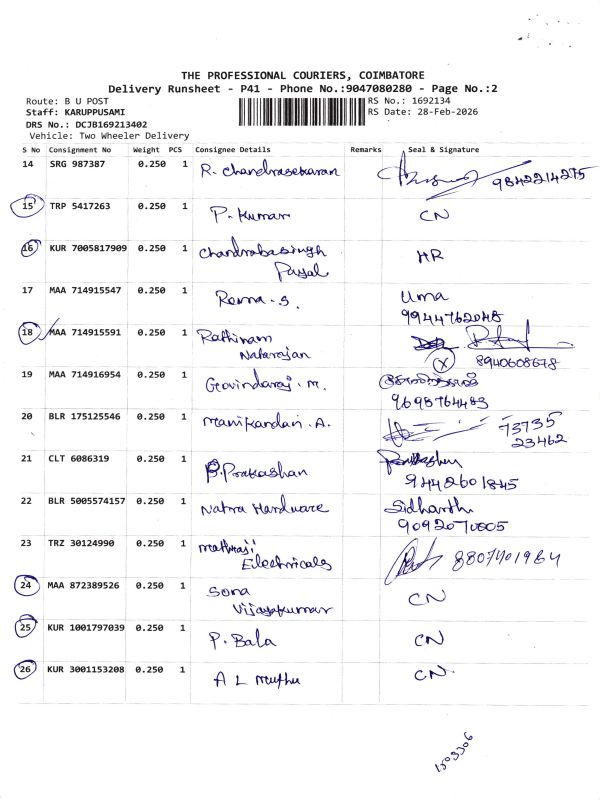 THE PROFESSIONAL COURIERS, COIMBATORE
Delivery Runsheet - P41 - Phone No.:9047080280 - Page No.:2
Route: B U POST
Staff: KARUPPUSAMI
DRS No.: DCJB169213402
Vehicle: Two Wheeler Delivery
RS No.: 1692134
RS Date: 28-Feb-2026
S No Consignment No Weight PCS Consignee Details Remarks Seal & Signature
14 SRG 987387 0.250 1 R. Chandrasekaran 9842214275
15 TRP 5417263 0.250 1 P. Kumar CN
16 KUR 7005817909 0.250 1 Chandrabasingh HR
Payal
17 MAA 714915547 0.250 1 Rema. S. Uma
9944762048
18 MAA 714915591 0.250 1 Rathinam
Natarajan X 8940608678
19 MAA 714916954 0.250 1 Govindaraj. M.
9698764483
20 BLR 175125546 0.250 1 Manikandan. A. 73735
23462
21 CLT 6086319 0.250 1 P. Prakashan
9442601845
22 BLR 5005574157 0.250 1 Natra Hardware Sidharth
9092070005
23 TRZ 30124990 0.250 1 8807401984
Electricals
24 MAA 872389526 0.250 1 Sona CN
Vijayakumar
25 KUR 1001797039 0.250 1 P. Bala CN
26 KUR 3001153208 0.250 1 A L Muthu CN.
1503306